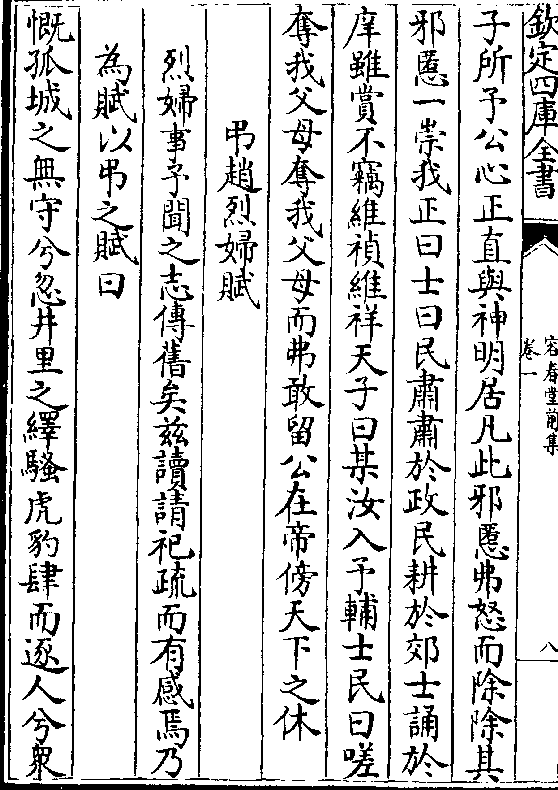 欽定四庫全書
容春堂前集
卷一
八
子所予公心正直與神明居凡此邪慝弗怒而除除其
邪慝一崇我正曰士曰民肅肅於政民耕於郊士誦於
庠雖賞不竊維禎維祥天子曰某汝入予輔士民曰嗟
奪我父母奪我父母而弗敢留公在帝傍天下之休
弔趙烈婦賦
烈婦事予聞之志傳舊矣茲讀請祀疏而有感焉乃
為賦以弔之賦曰
慨孤城之無守兮忽井里之繹騷虎豹肆而逐人兮衆